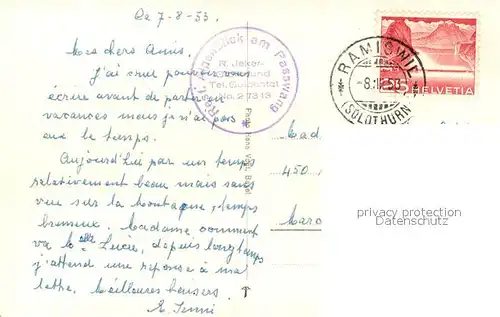 Le 7-8-53.
Mes chers Amis.
J'ai cru pouvoir vous
écrire avant de partir en
vacances mais je n'ai pas
eu le temps.
Aujourd'hui par un temps
relativement beau mais sans
vue sur la Montagne, temps
brumeux. Madame comment
va Melle Lucie, depuis longtemps
j'attend une reponse à ma
lettre. Meilleures baisers.
E. Jenni
Rest. Alpenblick am Passwang
R. Jeker-
Tel.
No. 2 73 13
Mad
450
Maro
RAMISWIL
-8. 53
(SOLOTHURN)
HELVETIA
privacy protection
Datenschutz